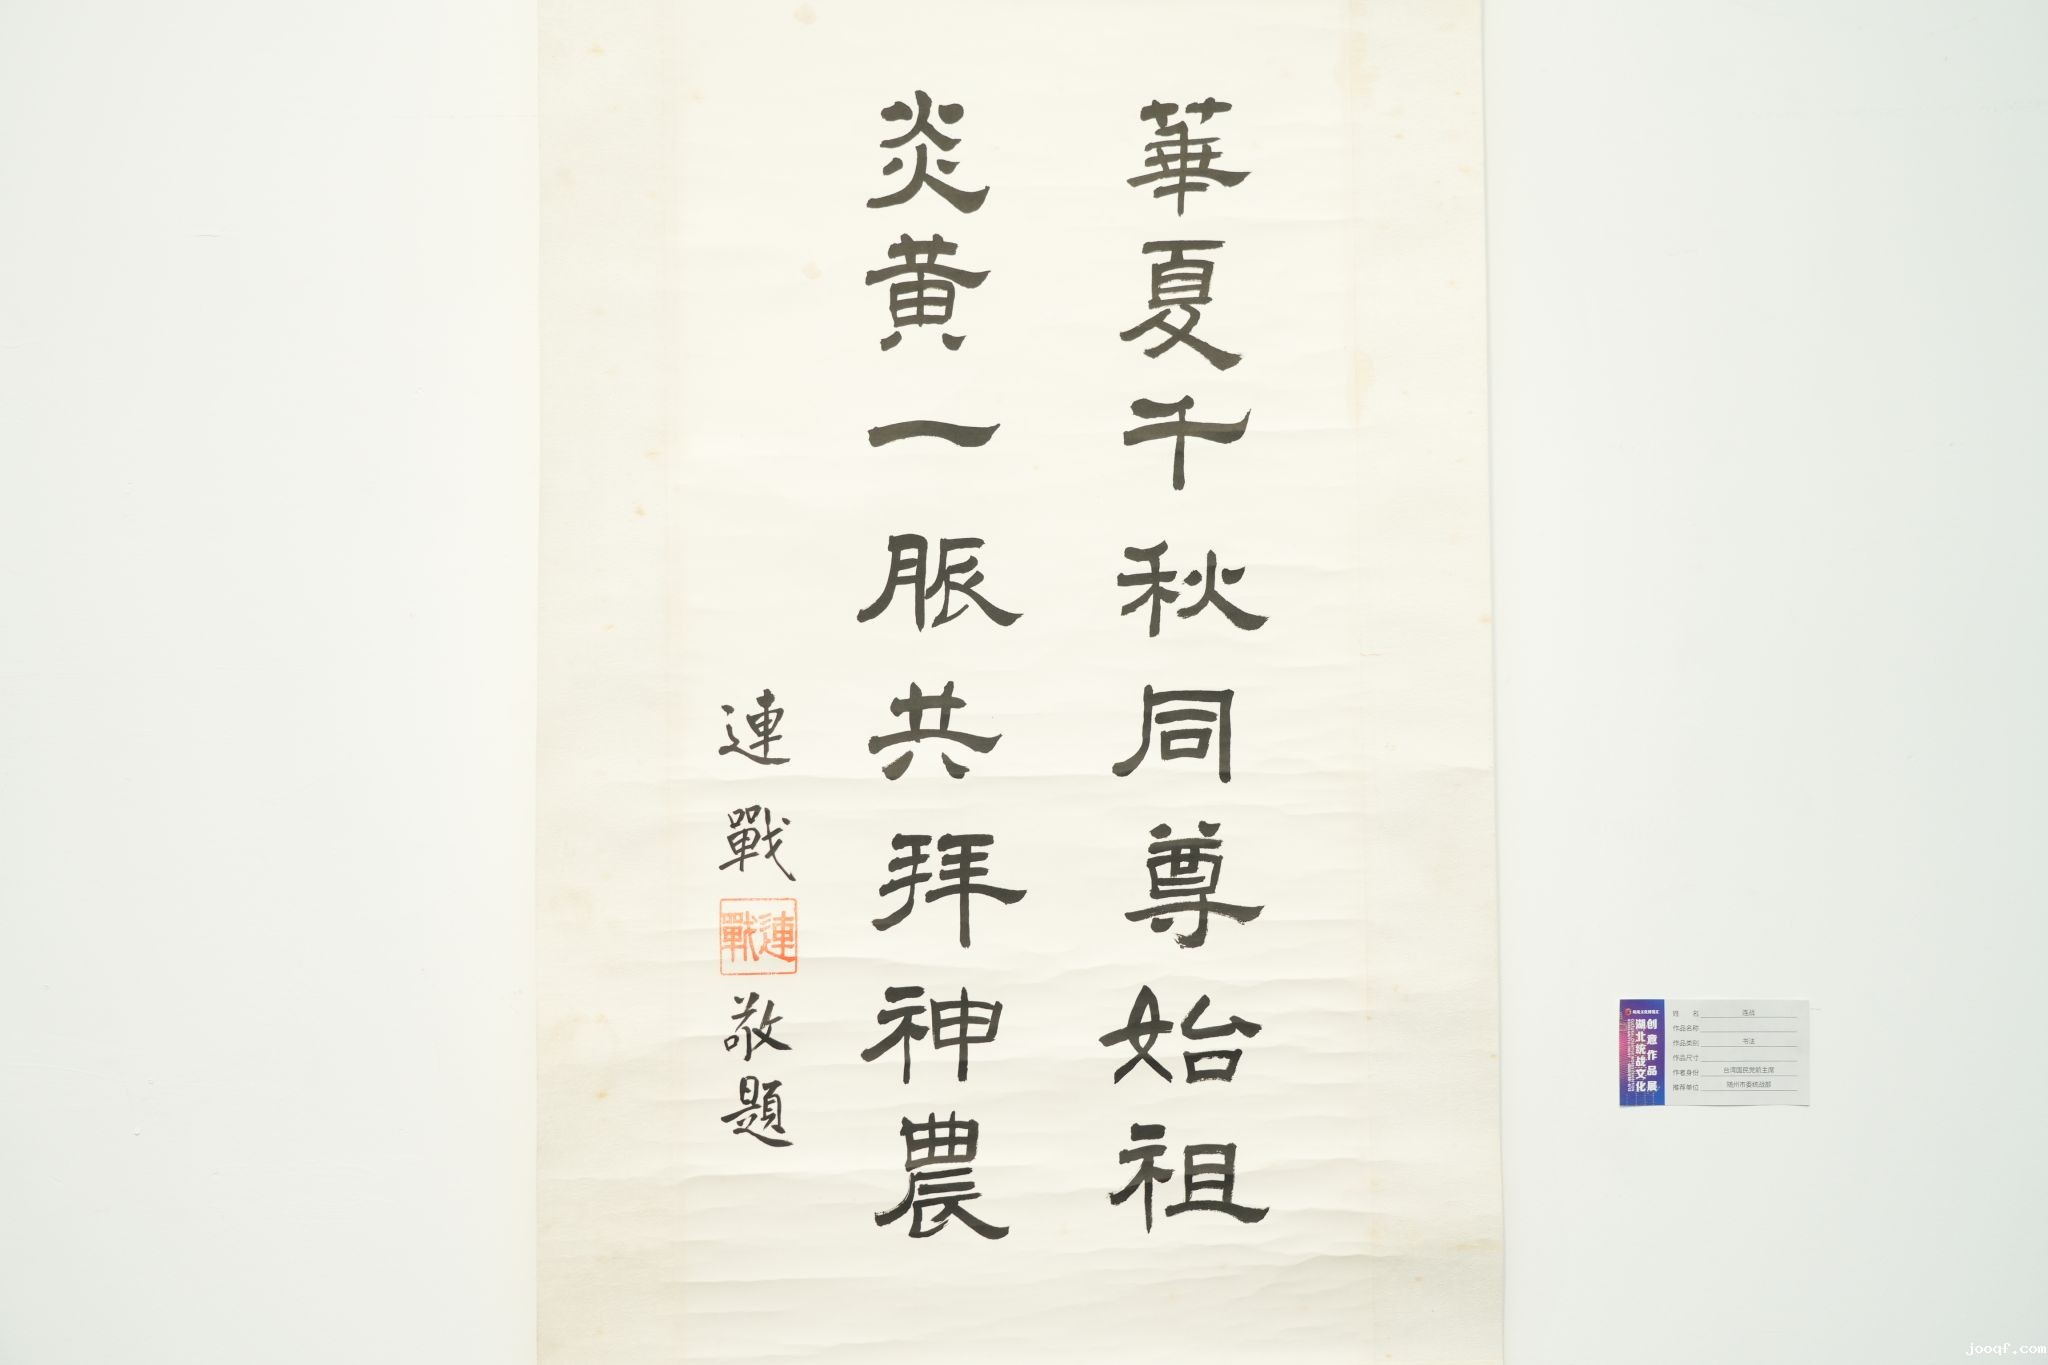 華夏千秋同尊始祖
炎黃一脈共拜神農
連戰
連戰
敬題
創意作品展
湖北統战文化
姓名 连战
作品名称
作品类别 书法
作品尺寸
作者身份 台湾国民党前主席
推荐单位 随州市委统战部
jooqf.com